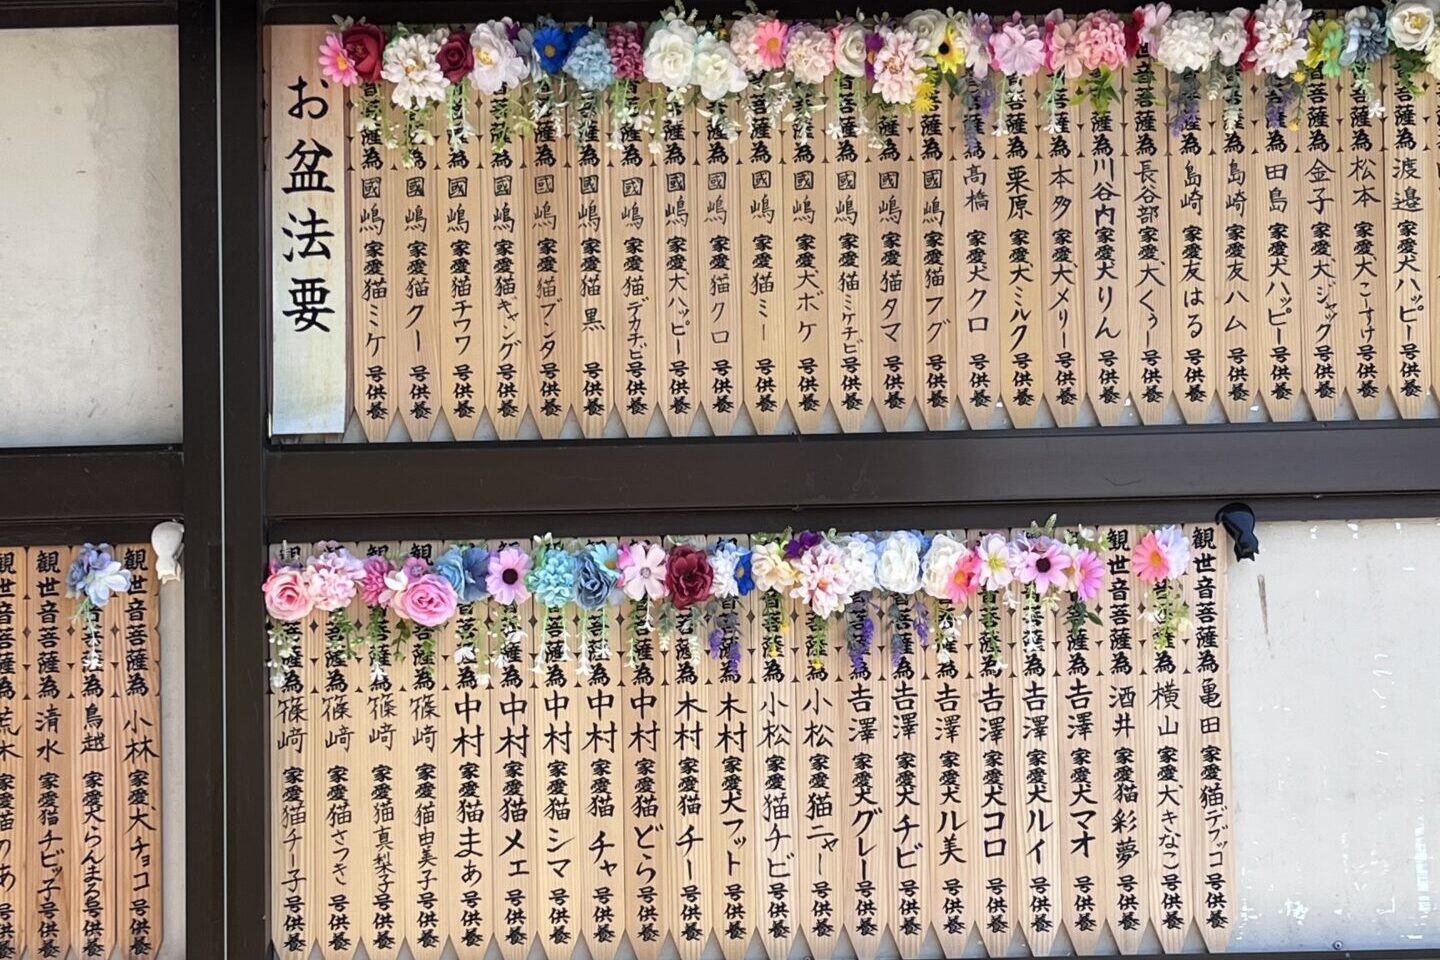 お盆法要
音菩薩為 國嶋 家愛猫ミケ号供養
菩薩為 國嶋 家愛猫クー号供養
菩薩為 國嶋 家愛猫チワワ号供養
菩薩為 國嶋 家愛猫ギャング号供養
菩薩為 國嶋 家愛猫ブンタ号供養
菩薩為 國嶋 家愛猫黒号供養
菩薩為 國嶋 家愛猫デカチビ号供養
菩薩為 國嶋 家愛犬ハッピー号供養
菩薩為 國嶋 家愛猫クロ号供養
音菩薩為 國嶋 家愛猫ミー号供養
菩薩為 國嶋 家愛犬ボケ号供養
菩薩為 國嶋 家愛猫ミケチビ号供養
菩薩為 國嶋 家愛猫タマ号供養
菩薩為 國嶋 家愛猫フグ号供養
音菩薩為 高橋 家愛犬クロ号供養
音菩薩為 栗原 家愛犬ミルク号供養
音菩薩為 本多 家愛犬メリー号供養
音菩薩為 川谷内家愛犬りん号供養
世音菩薩為 長谷部家愛犬くぅー号供養
音菩薩為 島崎 家愛友はる号供養
音菩薩為 島崎 家愛友ハム号供養
音菩薩為 田島 家愛犬ハッピー号供養
音菩薩為 金子 家愛犬ジャッグ号供養
音菩薩為 松本 家愛犬こすけ号供養
音菩薩為 渡邉 家愛犬ハッピー号供養
観世音菩薩為 荒木 家愛猫のあ号供養
観世音菩薩為 清水 家愛猫チビッ子号供養
菩薩為 鳥越 家愛犬らんまる号供養
観世音菩薩為 小林 家愛犬チョコ号供養
観 菩薩為 篠﨑 家愛猫チー子号供養
菩薩為 篠﨑 家愛猫さつき号供養
観 菩薩為 篠﨑 家愛猫真梨子号供養
観 菩薩為 篠﨑 家愛猫由美子号供養
菩薩為 中村 家愛猫まぁ号供養
菩薩為 中村 家愛猫メェ号供養
菩薩為 中村 家愛猫シマ号供養
菩薩為 中村 家愛猫チャ号供養
菩薩為 中村 家愛猫どら号供養
菩薩為 木村 家愛猫チー号供養
音菩薩為 木村 家愛犬フット号供養
音菩薩為 小松 家愛猫チビ号供養
菩薩為 小松 家愛猫ニャー号供養
音菩薩為 吉澤 家愛犬グレー号供養
音菩薩為 吉澤 家愛犬チビ号供養
菩薩為 吉澤 家愛犬ル美号供養
音菩薩為 吉澤 家愛犬コロ号供養
菩薩為 吉澤 家愛犬ルイ号供養
音菩薩為 吉澤 家愛犬マオ号供養
観世音菩薩為 酒井 家愛猫彩夢号供養
音菩薩為 横山 家愛犬きなこ号供養
観世音菩薩為 亀田 家愛猫デブッコ号供養